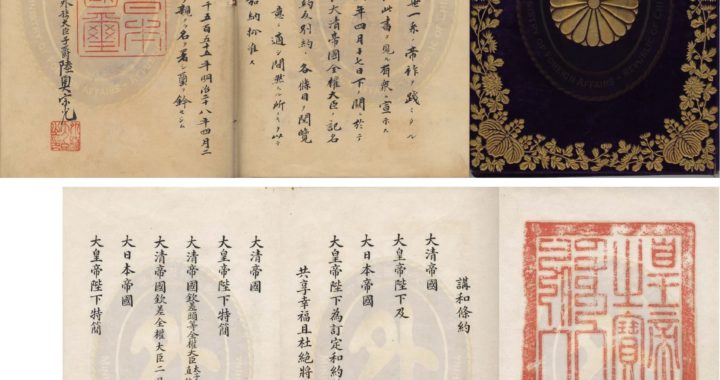 世一系ノ帝祚ヲ践ミタル
此書ヲ見ル有衆ニ宣示ス
年四月十七日下ノ関ニ於テ
大清帝國全權大臣ノ記名
約及別約ノ各條目ヲ閲覧
意ニ適シ間然スル所ナキヲ以テ
嘉納批准ス
千五百五十五年明治二十八年四月二
親ラ名ヲ署シ璽ヲ鈐セシム
外務大臣子爵陸奥宗光
皇帝之寶
講和條約
大清帝國
大皇帝陛下及
大日本帝國
大皇帝陛下為訂定和約
共享幸福且杜絶將
大清帝國
大皇帝陛下特簡
大清帝國欽差頭等全權大臣太子
大清帝國欽差全權大臣二品
大日本帝國
大皇帝陛下特簡